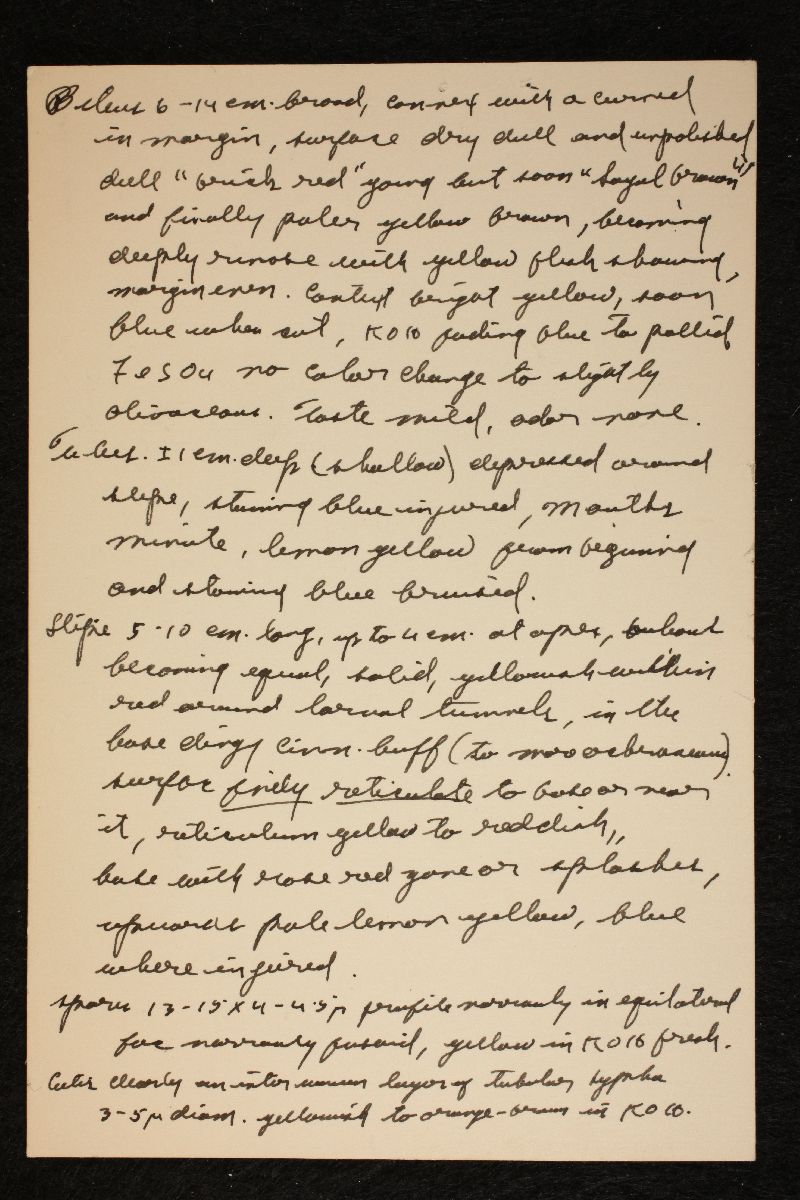 Pileus 6-14 cm. broad, convex with a curved
in margin, surface dry dull and unpolished
dull "brick red" young but soon "Sayal brown"
and finally paler yellow brown, becoming
deeply rimose with yellow flesh showing,
margin even. Context bright yellow, soon
blue when cut, KOH fading blue to pallid
FeSO4 no color change to slightly
olivaceous. Taste mild, odor none.
Tubes ±1 cm. deep (shallow) depressed around
stipe, staining blue injured, mouths
minute, lemon yellow from begining
and staining blue bruised.
Stipe 5-10 cm. long, up to 4 cm. at apex,
becoming equal, solid, yellowish within
red around larval tunnels, in the
base dingy cinn. buff (to
surface finely reticulate to base or near
it, reticulum yellow to reddish,
base with rose red zone or splashes,
upwards pale lemon yellow, blue
where injured.
spores 13-15 x 4-4.5µ profile narrowly inequilateral
face narrowly fusoid, yellow in KOH fresh.
Cutis clearly an interwoven layer of tubular hyphae
3-5µ diam. yellowish to orange-brown in KOH.